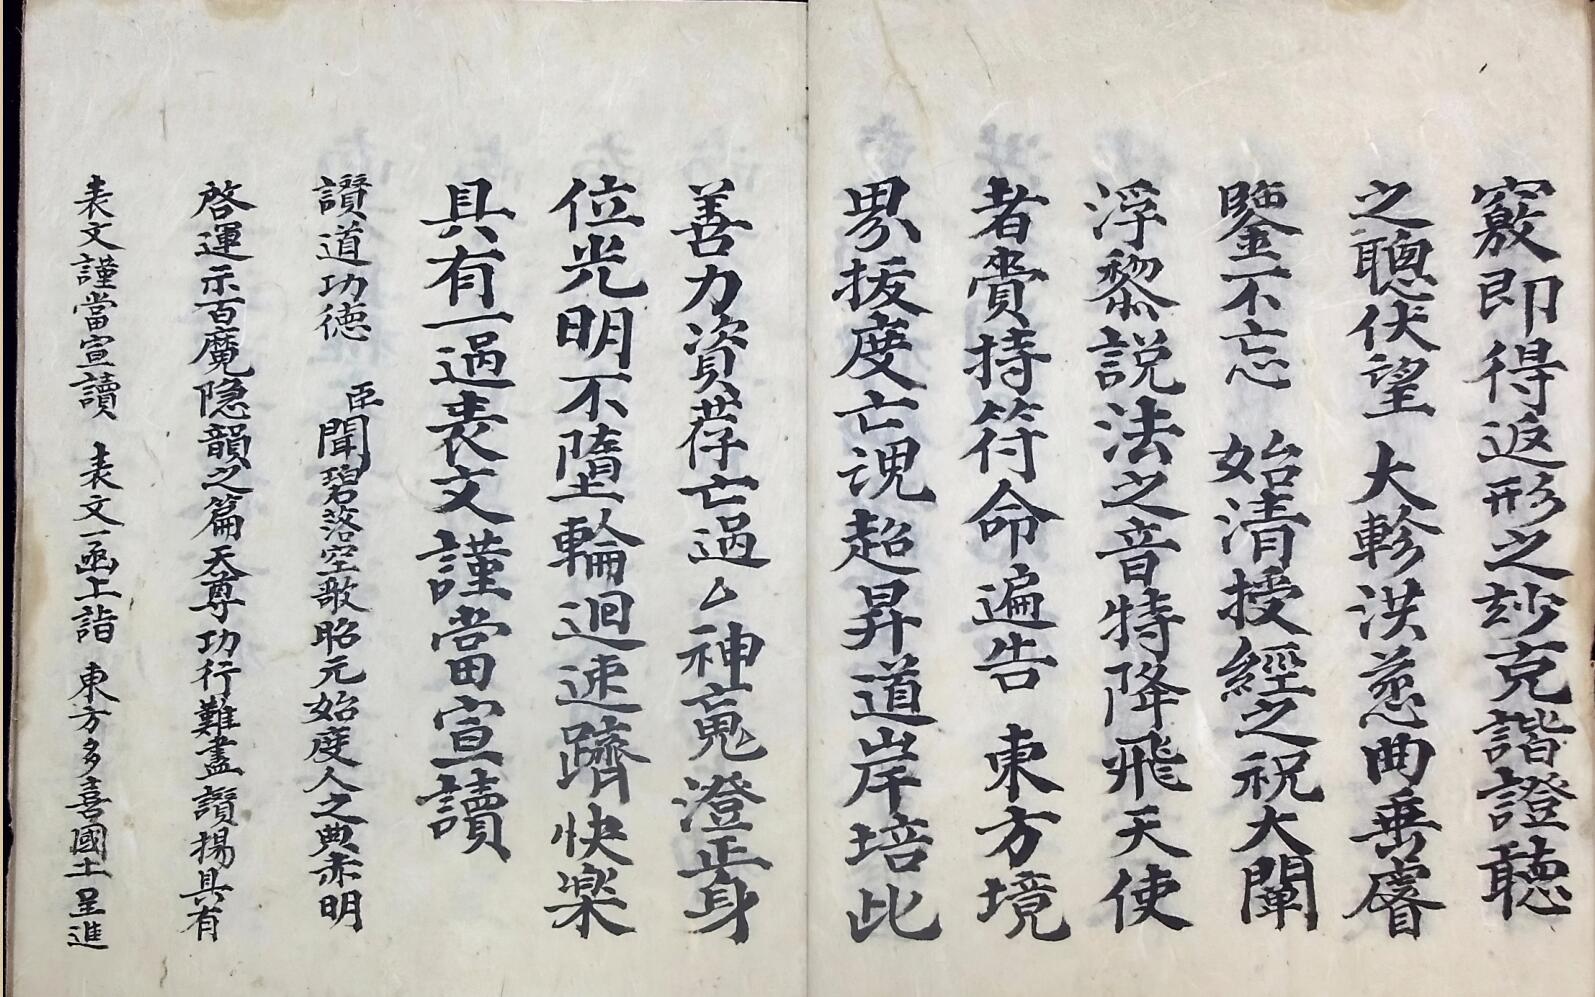 竅即得返形之玅克諧證聽
之聰伏望 大軫洪慈曲垂睿
鑒不忘 始清授經之祝大闡
浮黎説法之音特降飛天使
者賷持符命遍告 東方境
界拔度亡魂超昇道岸培此
善力資荐亡過厶神䰟澄正身
位光明不墮輪迴速躋快楽
具有一過表文謹當宣讀
讃道功德 臣聞碧落空歌昭元始度人之典赤明
啓運示百魔隐韻之篇天尊功行難盡讃揚具有
表文謹當宣讀 表文一函上詣 東方多喜國土 呈進